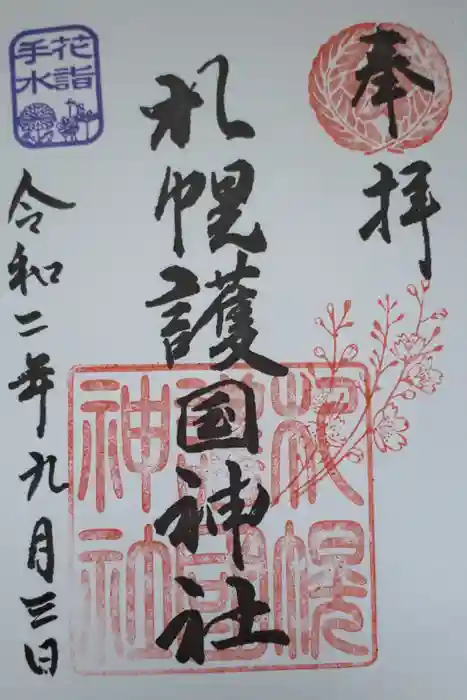 奉拝
札幌護国神社
令和二年九月三日
花詣
手水
札幌
護國
神社